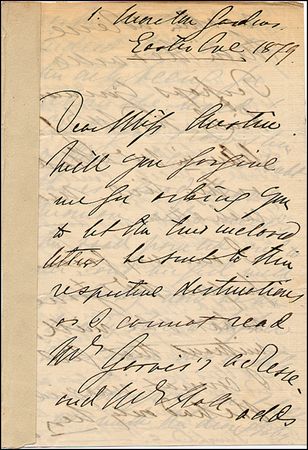 1. Moreton Gardens.
Easter Eve 1879.
Dear Miss Austin
Will you forgive
me for asking you
to let the two inclosed
letters be sent to their
respective destinations
as I cannot read
Mrs Jarvis's adresse
and Mrs
adds